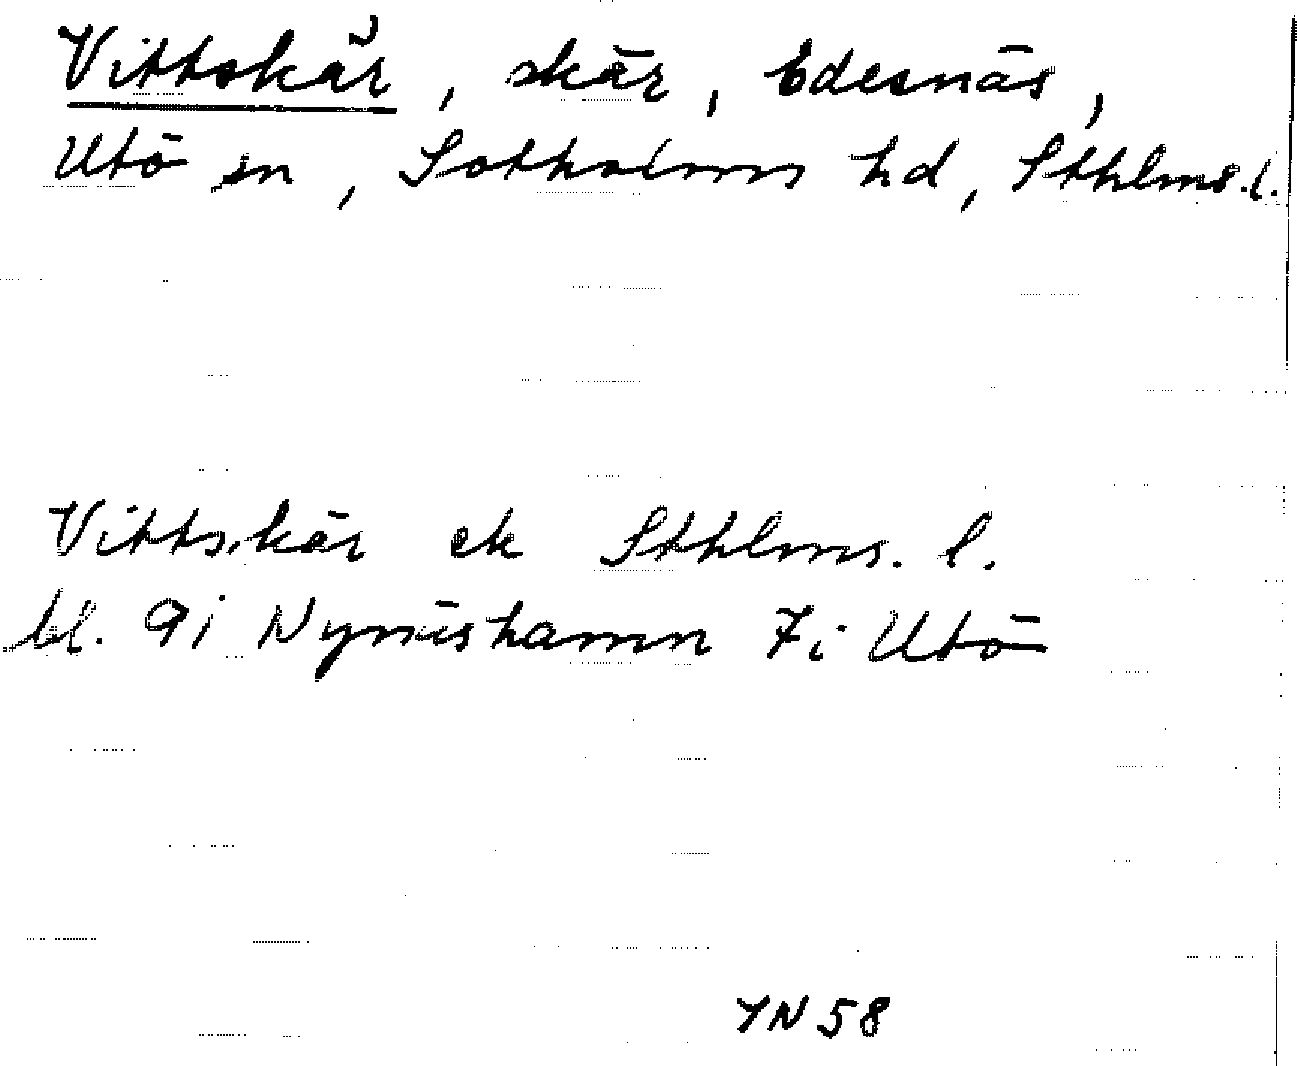 Vittskär, skär, Edesnäs,
Utö sn, Sotholms hd, Sthlms. l.
Vittskär ek Sthlms. l.
bl. 9i Nynäshamn 7i Utö
YN 58